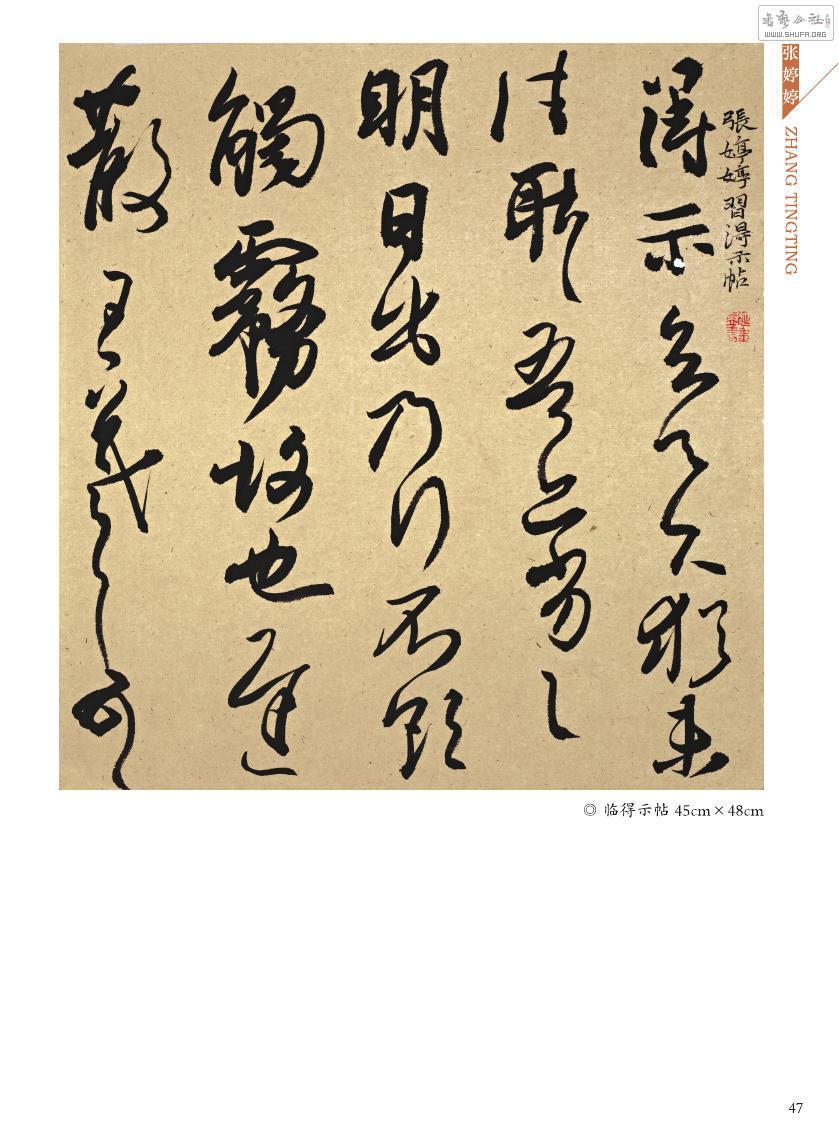 書藝公社
WWW.SHUFA.ORG
张婷婷
ZHANG TINGTING
張婷婷習得示帖
得示知足下猶未
佳耿〻吾亦劣〻
明日出乃行不欲
觸霧故也遲
散王羲之頓首
◎ 临得示帖 45cm×48cm
47